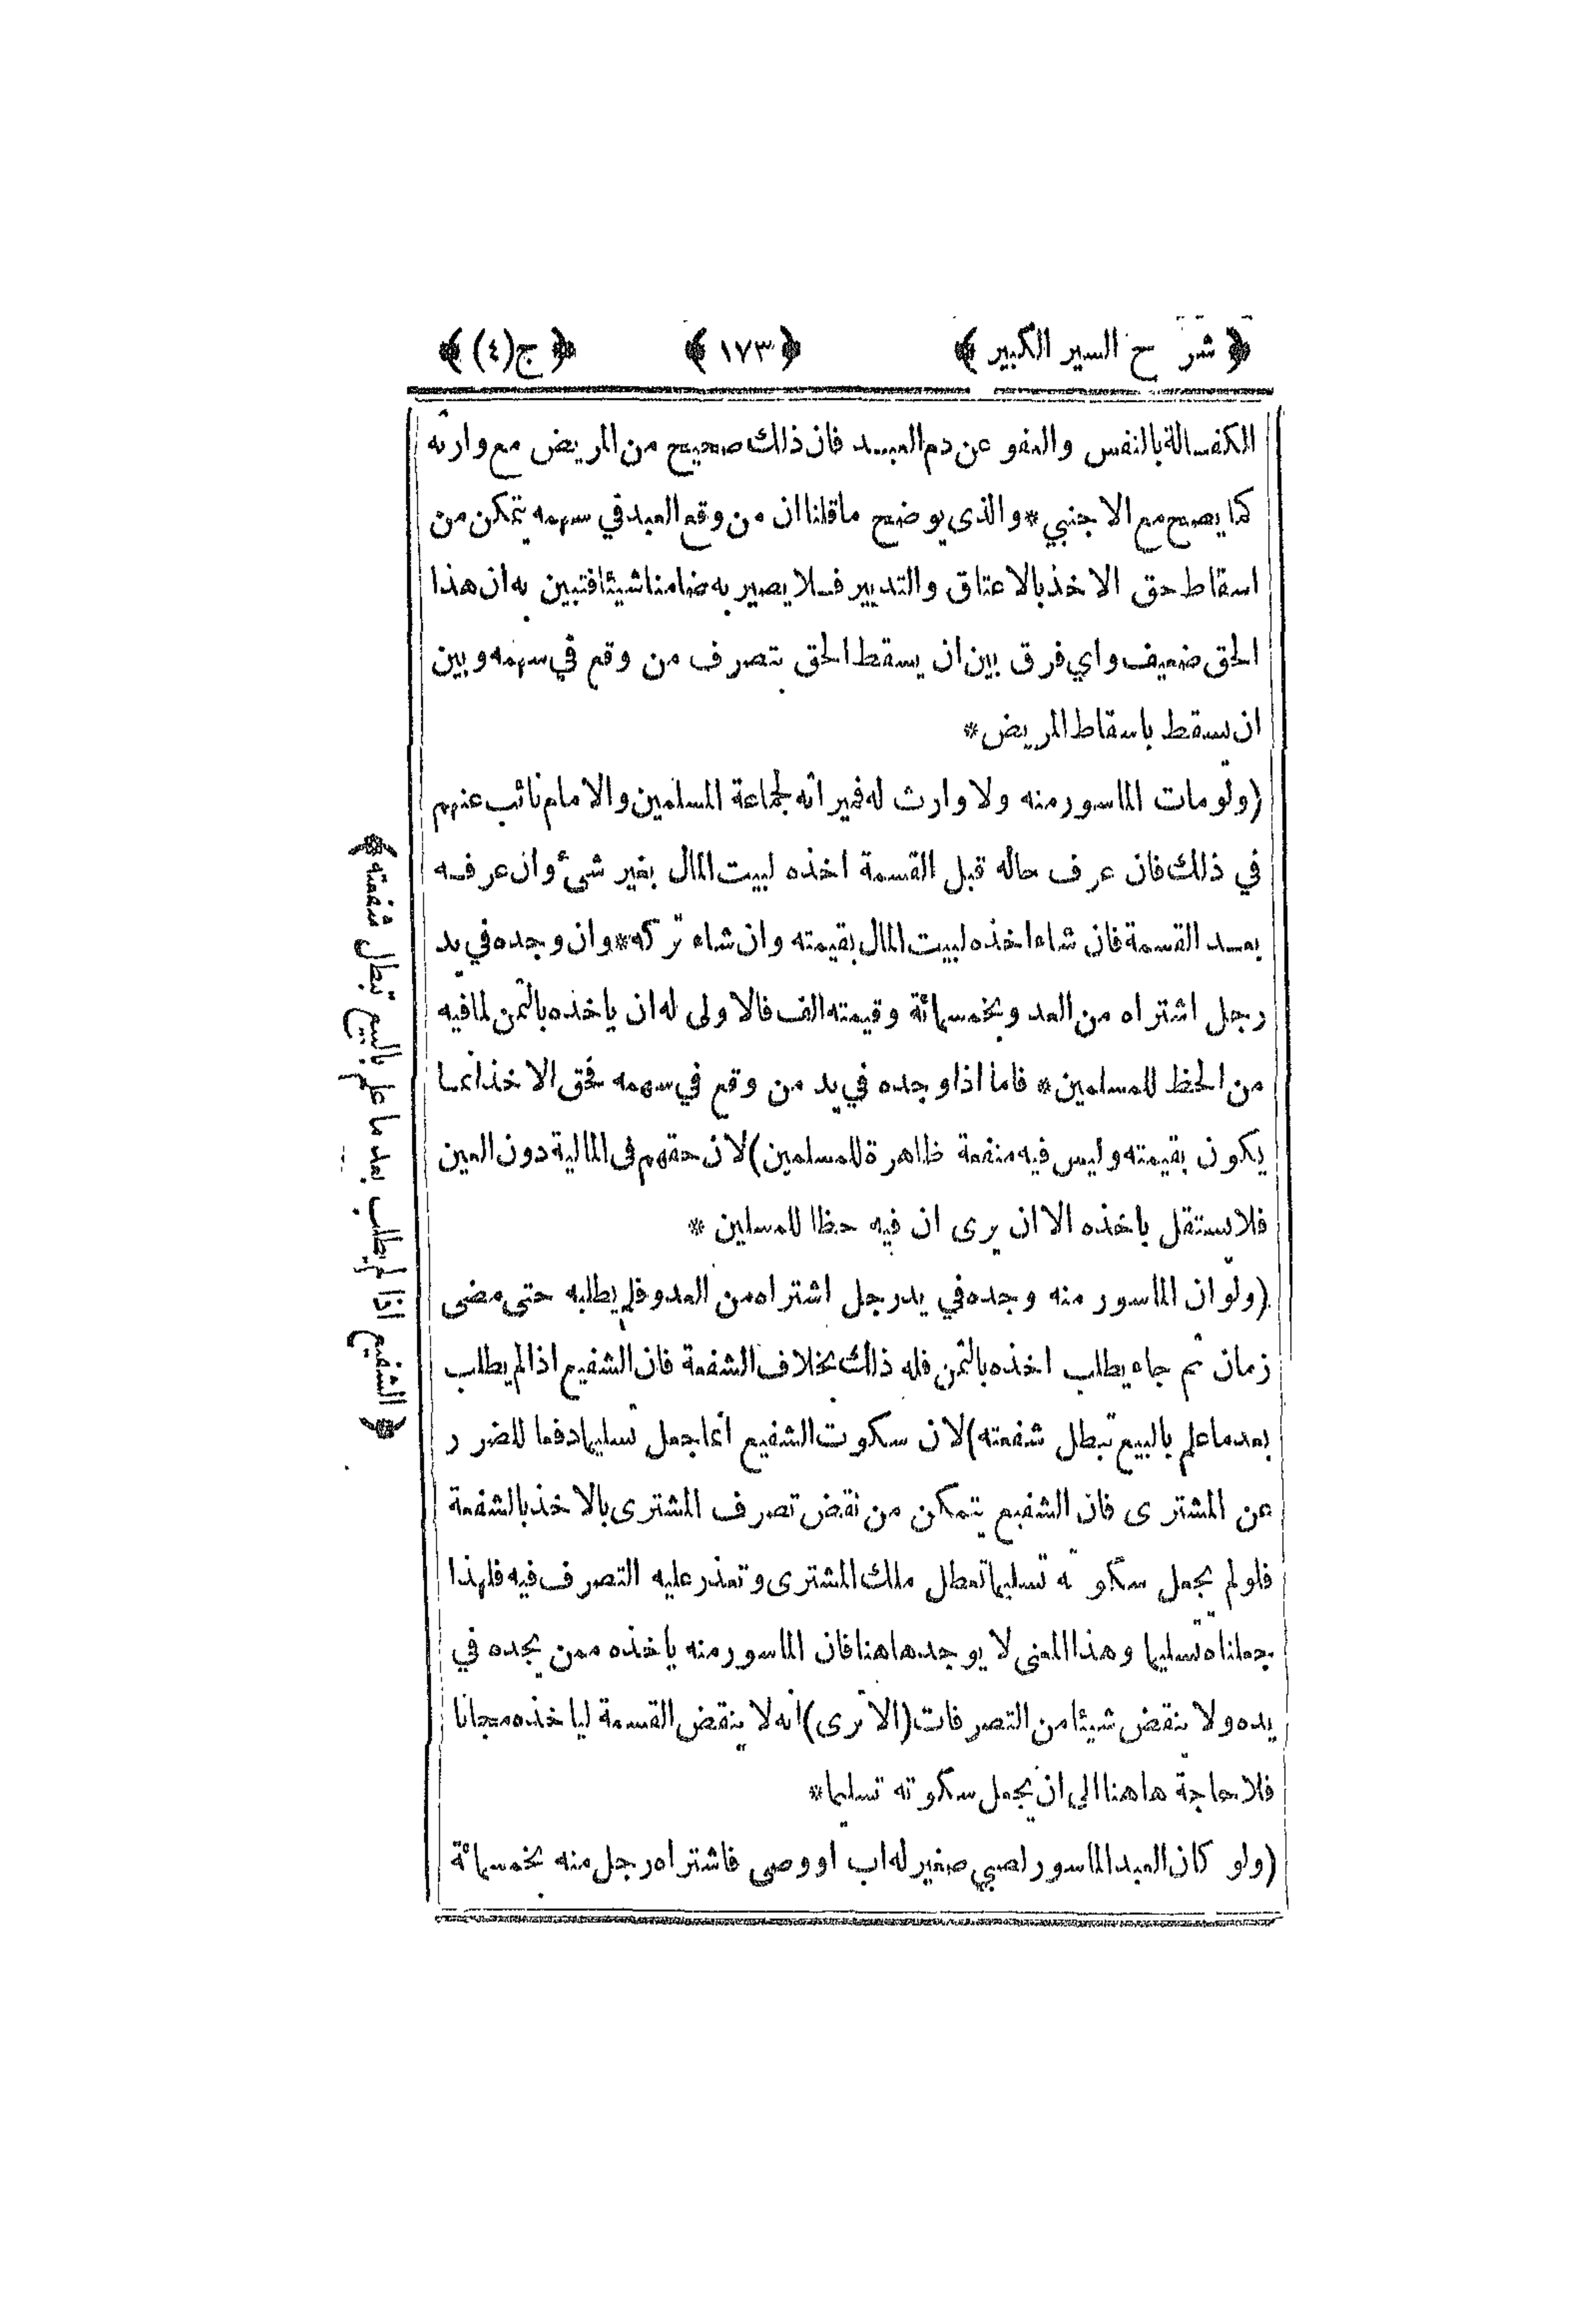 ﴿ شرح السير الكبير ﴾ ﴿ ١٧٣ ﴾ ﴿ ج (٤) ﴾
الكفالة بالنفس والعفو عن دم العبد فان ذلك صحيح من المريض مع وارثه
كما يصح مع الاجنبي * والذى يوضح ما قلنا ان من وقع العبد في سهمه يتمكن من
اسقاط حق الاخذ بالاعتاق والتدبير فلا يصير به ضامنا شيئا فتبين به ان هذا
الحق ضعيف واي فرق بين ان يسقط الحق بتصرف من وقع في سهمه وبين
ان يسقط باسقاط المريض *
(ولو مات الماسور منه ولا وارث له فميراثه لجماعة المسلمين والامام نائب عنهم
في ذلك فان عرف حاله قبل القسمة اخذه لبيت المال بغير شئ وان عرفه
بعد القسمة فان شاء اخذه لبيت المال بقيمته وان شاء تركه * وان وجده في يد
رجل اشتراه من العدو بخمسمائة وقيمته الف فالاولى له ان ياخذه بالثمن لما فيه
من الحظ للمسلمين * فاما اذا وجده في يد من وقع في سهمه فحق الاخذ انما
يكون بقيمته وليس فيه منفعة ظاهرة للمسلمين) لان حقهم فى المالية دون العين
فلا يستقل باخذه الا ان يرى ان فيه حظا للمسلين *
(ولو ان الماسور منه وجده في يد رجل اشتراه من العدو فلم يطلبه حتى مضى
زمان ثم جاء يطلب اخذه بالثمن فله ذلك بخلاف الشفعة فان الشفيع اذا لم يطلب
بعد ما علم بالبيع تبطل شفعته) لان سكوت الشفيع انما جعل تسليما دفعا للضرر
عن المشترى فان الشفيع يتمكن من نقض تصرف المشترى بالاخذ بالشفعة
فلو لم يجعل سكوته تسليما تعطل ملك المشترى وتعذر عليه التصرف فيه فلهذا
جعلناه تسليما وهذا المعنى لا يوجد هاهنا فان الماسور منه ياخذه ممن يجده في
يده ولا ينقض شيئا من التصرفات (الا ترى) انه لا ينقض القسمة لياخذه مجانا
فلا حاجة هاهنا الى ان يجعل سكوته تسليما *
(ولو كان العبد الماسور لصبي صغير له اب او وصى فاشتراه رجل منه بخمسمائة
﴿ الشفيع اذا لم يطلب بعد ما علم بالبيع تبطل شفعته ﴾